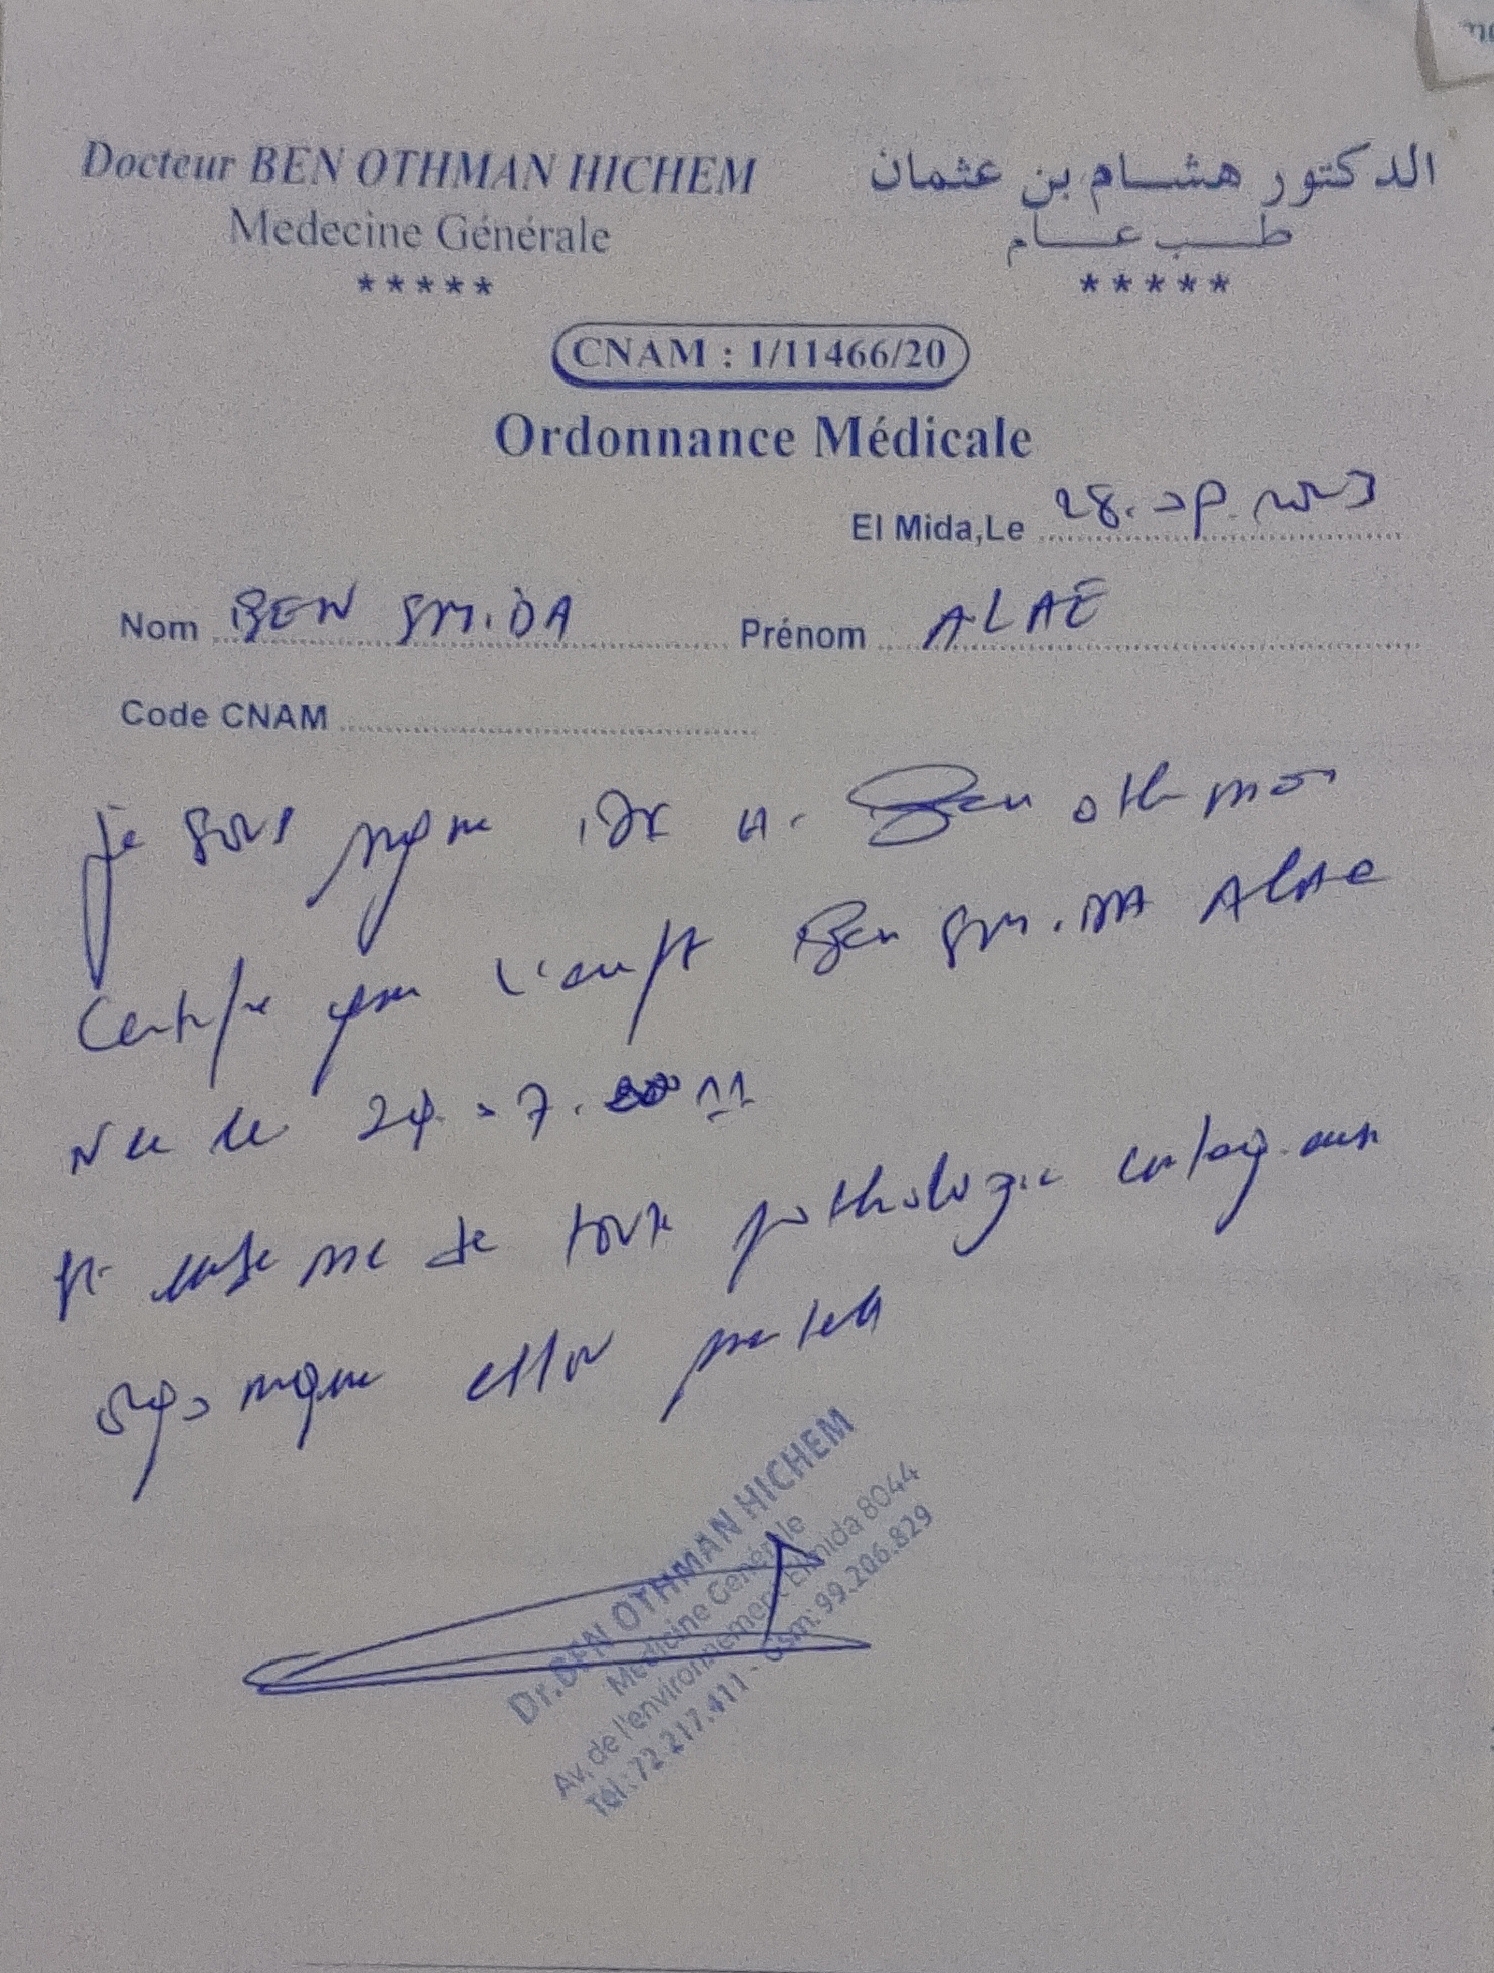 Docteur BEN OTHMAN HICHEM
Medecine Générale
*****
الدكتور هشام بن عثمان
طب عام
*****
CNAM : 1/11466/20
Ordonnance Médicale
El Mida,Le 28.
Nom BEN SMIDA Prénom ALAE
Code CNAM
Je sous signe Dr H. Ben othman
Certifie que l'enft Ben SMIDA Alae
Nee le
de toute pathologie contagieuse
organique
Dr.BEN OTHMAN HICHEM
Medicine Generale
Av. de l'environnement Elmida 8044
Tél.: 72.217.411 - Gsm: 99.206.829